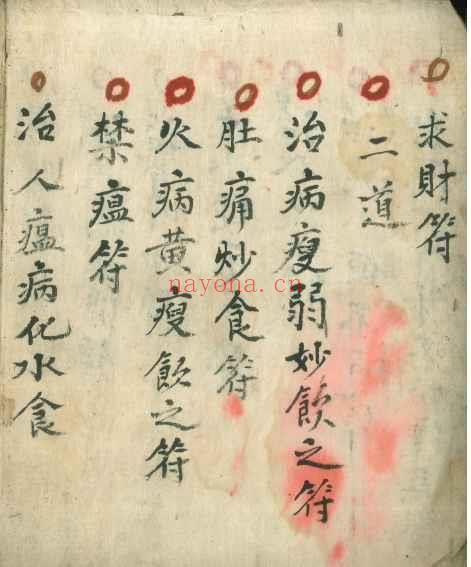 求財符
二道
治病瘦弱妙飲之符
肚痛炒食符
火病黃瘦飲之符
禁瘟符
治人瘟病化水食
nayona.cn